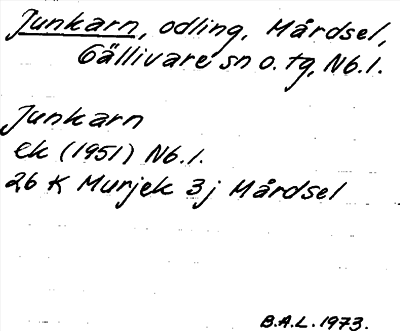 Junkarn, odling, Mårdsel,
Gällivare sn o. tg, Nb.l.
Junkarn
ek (1951) Nb.l.
26 K Murjek 3j Mårdsel
B.A.L. 1973.